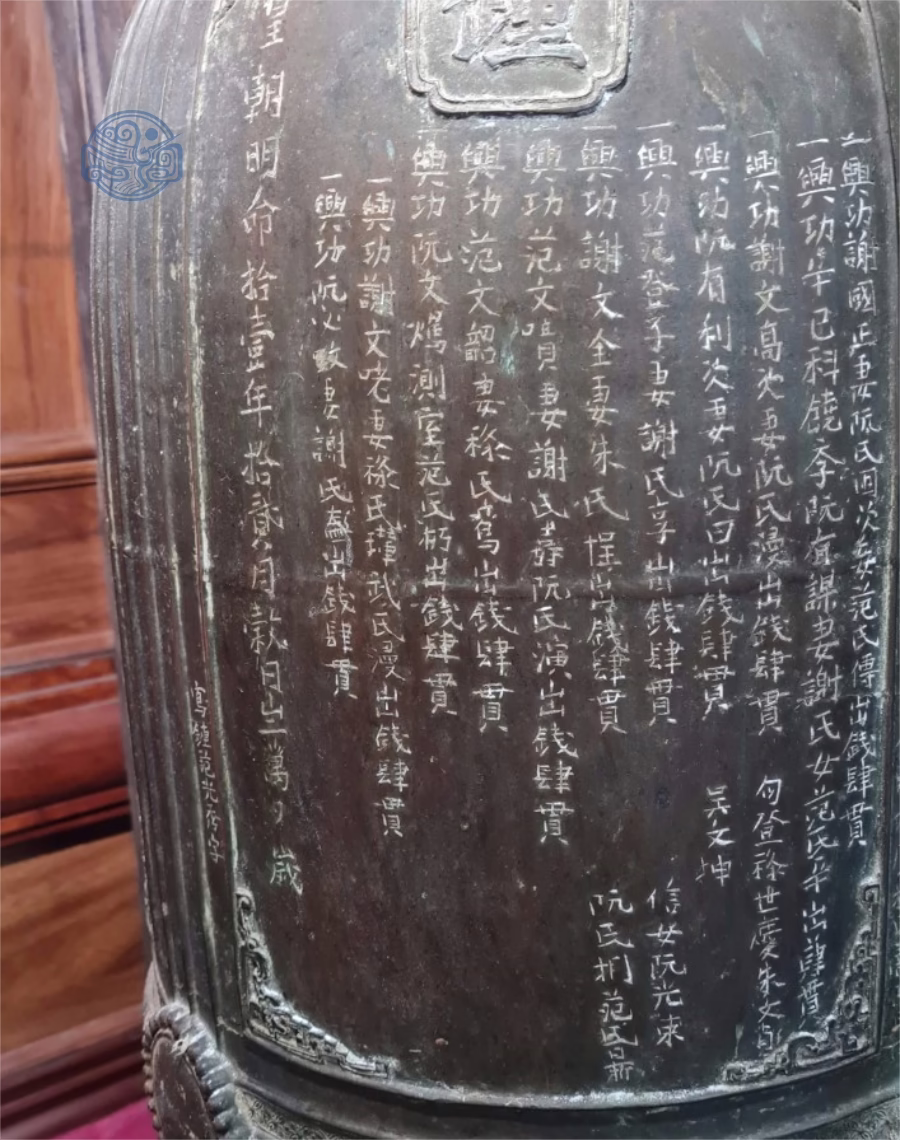 一興功謝國正妻阮氏回次妾范氏傳出錢肆貫
一興功辛巳科饒李阮有謀妻謝氏女范氏出肆貫
一興功謝文高次妻阮氏漫出錢肆貫
勾登祿世慶朱文
一興功阮有利次妻阮氏曰出錢肆貫
吳文坤
一興功范登子妻謝氏孚出錢肆貫
信女阮光束
一興功謝文全妻朱氏悜出錢肆貫
阮氏桐范氏最
一興功范文唄妻謝氏壽阮氏演出錢肆貫
一興功范文韶妻祿氏蔦出錢肆貫
一興功阮文側室范氏出錢肆貫
一興功謝文咾妻祿氏璋武氏漫出錢肆貫
一興功阮必致妻謝氏出錢肆貫
皇朝明命拾壹年拾貳月穀日萬萬歲